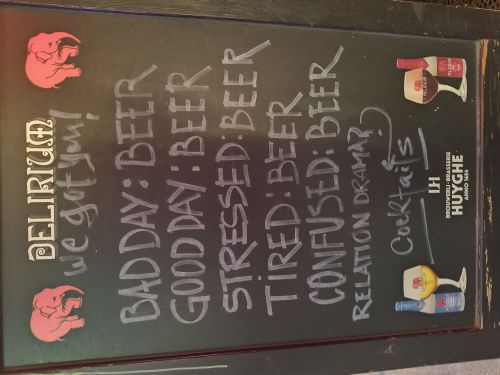 DELIRIUM
we got you!
BAD DAY: BEER
GOOD DAY: BEER
STRESSED: BEER
TIRED: BEER
CONFUSED: BEER
RELATION DRAMA?
Cocktails
LH
BROUWERIJ-BRASSERIE
HUYGHE
ANNO 1654